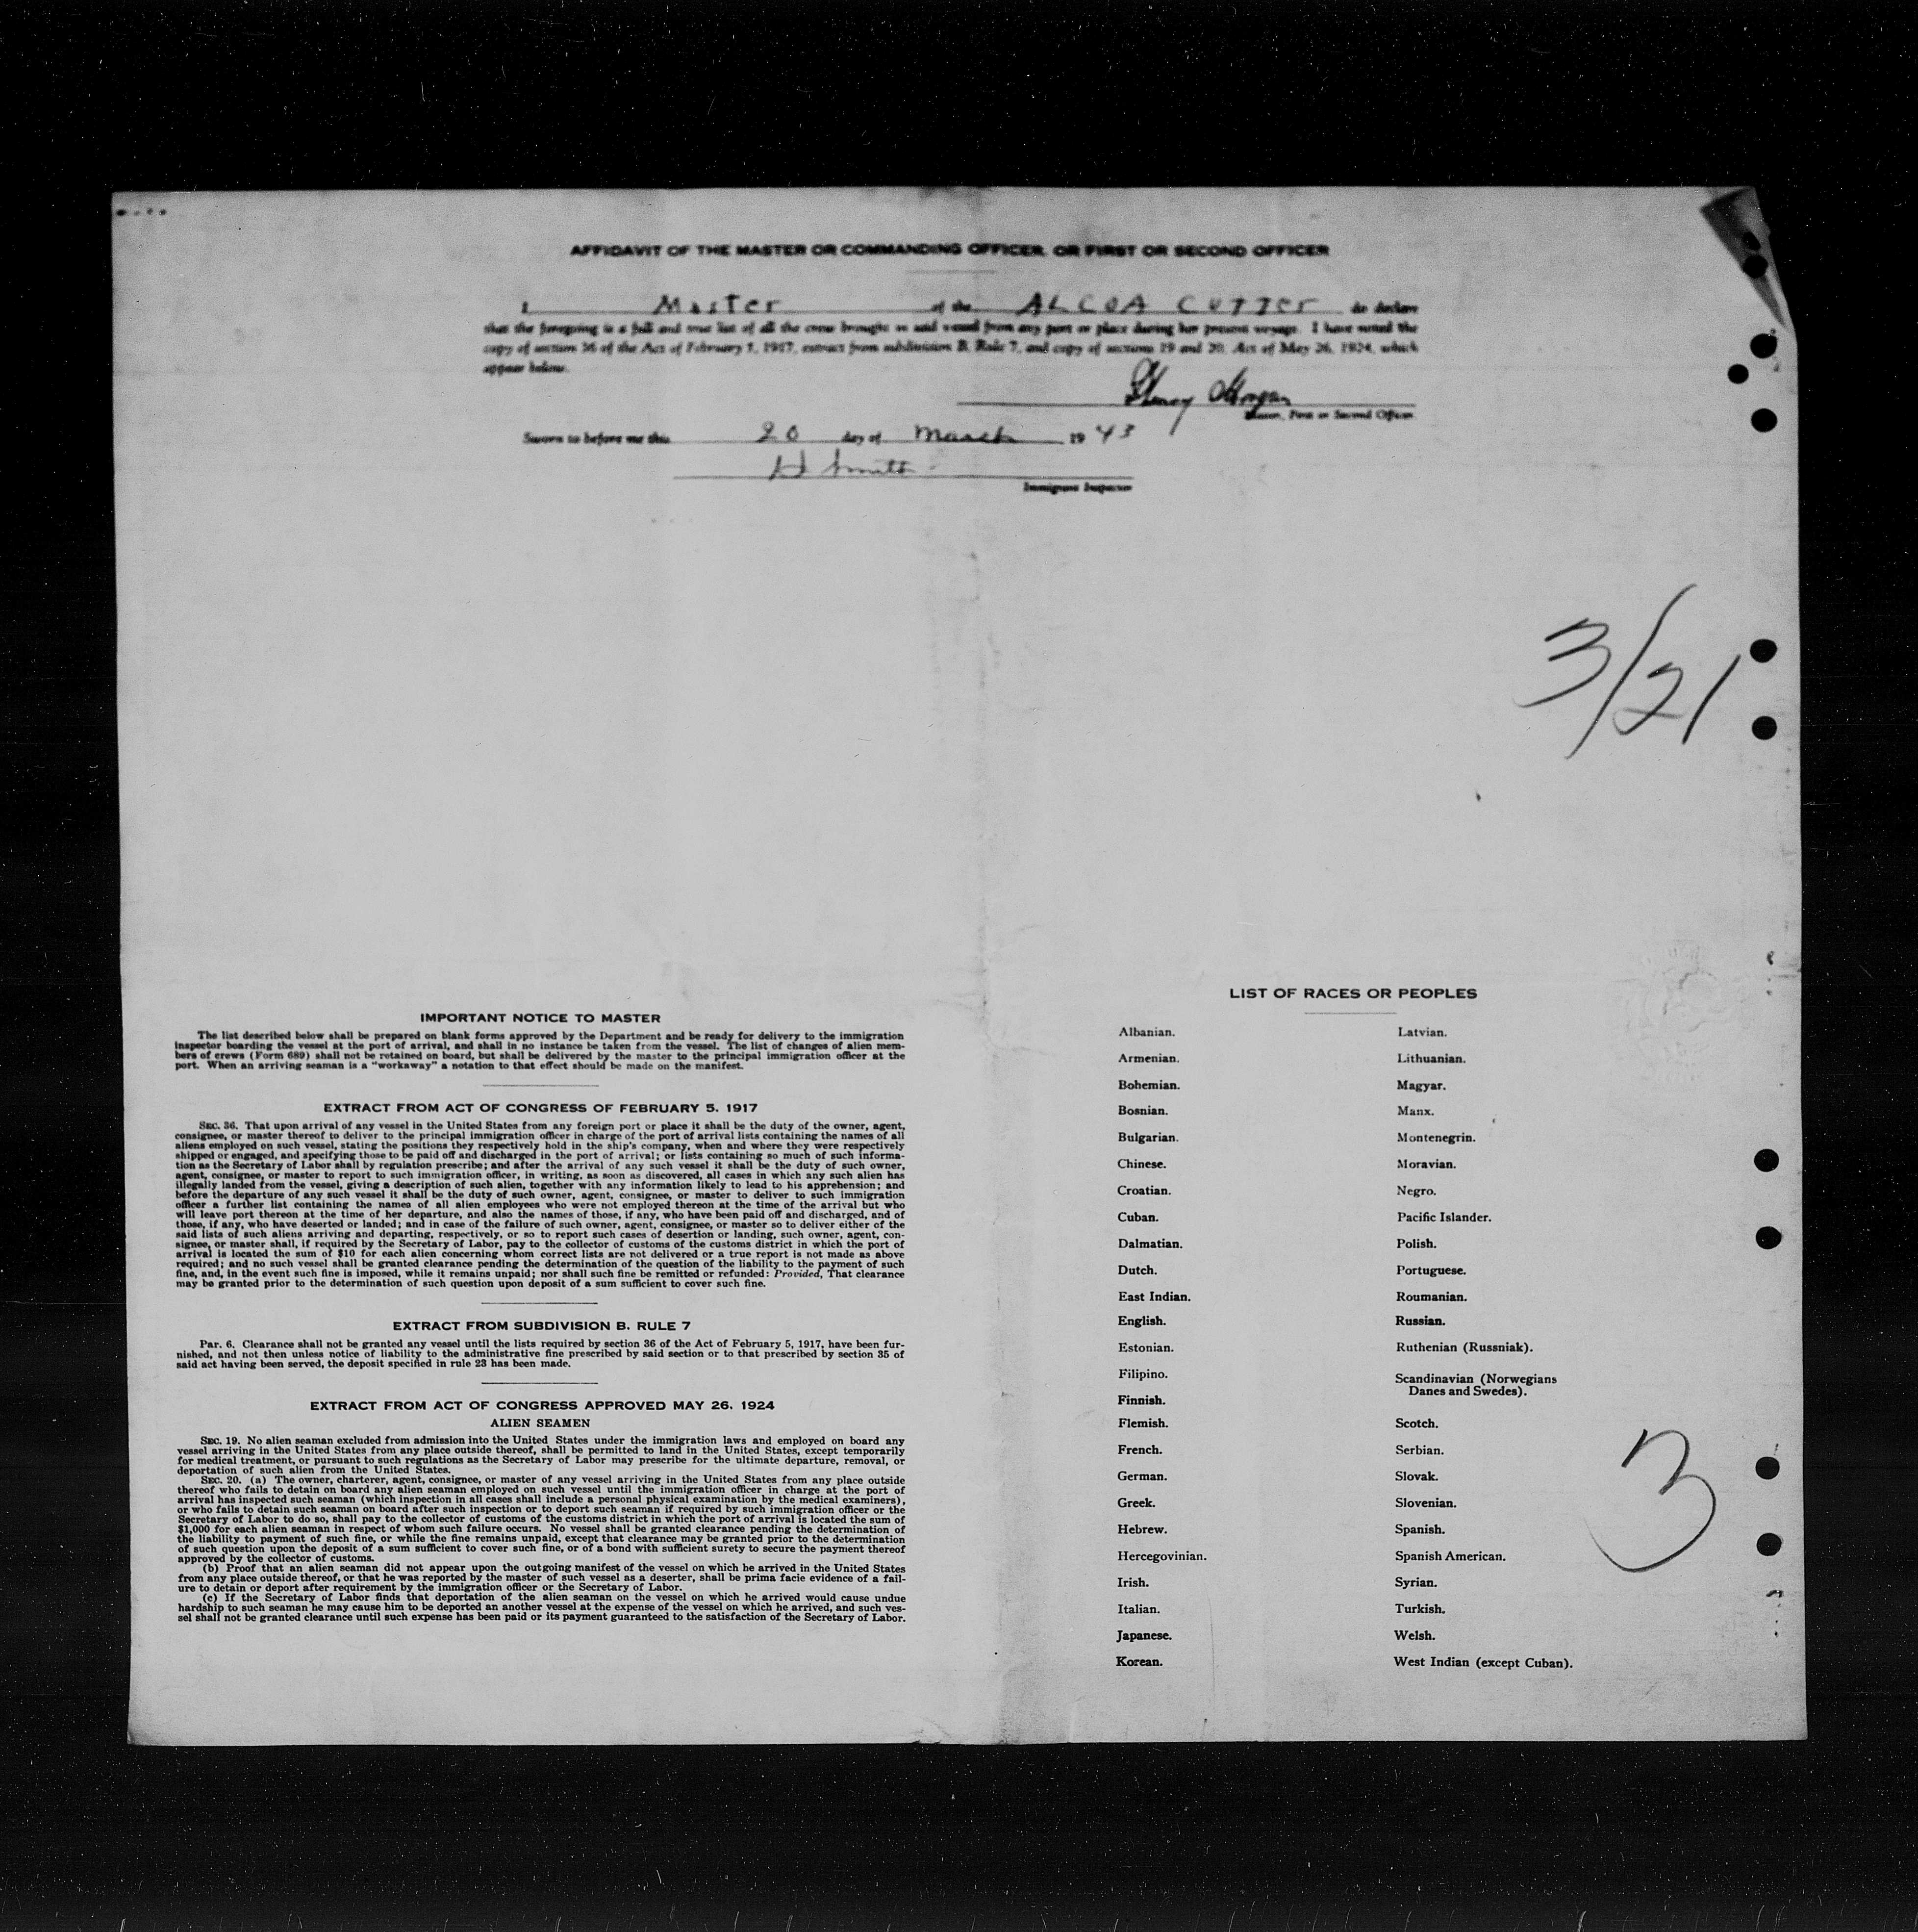 AFFIDAVIT OF THE MASTER OR COMMANDING OFFICER, OR FIRST OR SECOND OFFICER
I Master of the ALCOA CUTTER do declare
that the foregoing is a full and true list of all the crew brought in said vessel from any port or place during her present voyage. I have noted the
copy of section 36 of the Act of February 5, 1917, extract from subdivision B, Rule 7, and copy of sections 19 and 20, Act of May 26, 1924, which
appear below.
Henry Morgan
Master, First or Second Officer
Sworn to before me this 20 day of March 1943
H Smith
Immigrant Inspector
3/21
IMPORTANT NOTICE TO MASTER
The list described below shall be prepared on blank forms approved by the Department and be ready for delivery to the immigration
inspector boarding the vessel at the port of arrival, and shall in no instance be taken from the vessel. The list of changes of alien mem-
bers of crews (Form 689) shall not be retained on board, but shall be delivered by the master to the principal immigration officer at the
port. When an arriving seaman is a "workaway" a notation to that effect should be made on the manifest.
EXTRACT FROM ACT OF CONGRESS OF FEBRUARY 5, 1917
SEC. 36. That upon arrival of any vessel in the United States from any foreign port or place it shall be the duty of the owner, agent,
consignee, or master thereof to deliver to the principal immigration officer in charge of the port of arrival lists containing the names of all
aliens employed on such vessel, stating the positions they respectively hold in the ship's company, when and where they were respectively
shipped or engaged, and specifying those to be paid off and discharged in the port of arrival; or lists containing so much of such informa-
tion as the Secretary of Labor shall by regulation prescribe; and after the arrival of any such vessel it shall be the duty of such owner,
agent, consignee, or master to report to such immigration officer, in writing, as soon as discovered, all cases in which any such alien has
illegally landed from the vessel, giving a description of such alien, together with any information likely to lead to his apprehension; and
before the departure of any such vessel it shall be the duty of such owner, agent, consignee, or master to deliver to such immigration
officer a further list containing the names of all alien employees who were not employed thereon at the time of the arrival but who
will leave port thereon at the time of her departure, and also the names of those, if any, who have been paid off and discharged, and of
those, if any, who have deserted or landed; and in case of the failure of such owner, agent, consignee, or master so to deliver either of the
said lists of such aliens arriving and departing, respectively, or so to report such cases of desertion or landing, such owner, agent, con-
signee, or master shall, if required by the Secretary of Labor, pay to the collector of customs of the customs district in which the port of
arrival is located the sum of $10 for each alien concerning whom correct lists are not delivered or a true report is not made as above
required; and no such vessel shall be granted clearance pending the determination of the question of the liability to the payment of such
fine, and, in the event such fine is imposed, while it remains unpaid; nor shall such fine be remitted or refunded: Provided, That clearance
may be granted prior to the determination of such question upon deposit of a sum sufficient to cover such fine.
EXTRACT FROM SUBDIVISION B, RULE 7
Par. 6. Clearance shall not be granted any vessel until the lists required by section 36 of the Act of February 5, 1917, have been fur-
nished, and not then unless notice of liability to the administrative fine prescribed by said section or to that prescribed by section 35 of
said act having been served, the deposit specified in rule 23 has been made.
EXTRACT FROM ACT OF CONGRESS APPROVED MAY 26, 1924
ALIEN SEAMEN
SEC. 19. No alien seaman excluded from admission into the United States under the immigration laws and employed on board any
vessel arriving in the United States from any place outside thereof, shall be permitted to land in the United States, except temporarily
for medical treatment, or pursuant to such regulations as the Secretary of Labor may prescribe for the ultimate departure, removal, or
deportation of such alien from the United States.
SEC. 20. (a) The owner, charterer, agent, consignee, or master of any vessel arriving in the United States from any place outside
thereof who fails to detain on board any alien seaman employed on such vessel until the immigration officer in charge at the port of
arrival has inspected such seaman (which inspection in all cases shall include a personal physical examination by the medical examiners),
or who fails to detain such seaman on board after such inspection or to deport such seaman if required by such immigration officer or the
Secretary of Labor to do so, shall pay to the collector of customs of the customs district in which the port of arrival is located the sum of
$1,000 for each alien seaman in respect of whom such failure occurs. No vessel shall be granted clearance pending the determination of
the liability to payment of such fine, or while the fine remains unpaid, except that clearance may be granted prior to the determination
of such question upon the deposit of a sum sufficient to cover such fine, or of a bond with sufficient surety to secure the payment thereof
approved by the collector of customs.
(b) Proof that an alien seaman did not appear upon the outgoing manifest of the vessel on which he arrived in the United States
from any place outside thereof, or that he was reported by the master of such vessel as a deserter, shall be prima facie evidence of a fail-
ure to detain or deport after requirement by the immigration officer or the Secretary of Labor.
(c) If the Secretary of Labor finds that deportation of the alien seaman on the vessel on which he arrived would cause undue
hardship to such seaman he may cause him to be deported an another vessel at the expense of the vessel on which he arrived, and such ves-
sel shall not be granted clearance until such expense has been paid or its payment guaranteed to the satisfaction of the Secretary of Labor.
LIST OF RACES OR PEOPLES
Albanian.
Armenian.
Bohemian.
Bosnian.
Bulgarian.
Chinese.
Croatian.
Cuban.
Dalmatian.
Dutch.
East Indian.
English.
Estonian.
Filipino.
Finnish.
Flemish.
French.
German.
Greek.
Hebrew.
Hercegovinian.
Irish.
Italian.
Japanese.
Korean.
Latvian.
Lithuanian.
Magyar.
Manx.
Montenegrin.
Moravian.
Negro.
Pacific Islander.
Polish.
Portuguese.
Roumanian.
Russian.
Ruthenian (Russniak).
Scandinavian (Norwegians
Danes and Swedes).
Scotch.
Serbian.
Slovak.
Slovenian.
Spanish.
Spanish American.
Syrian.
Turkish.
Welsh.
West Indian (except Cuban).
3